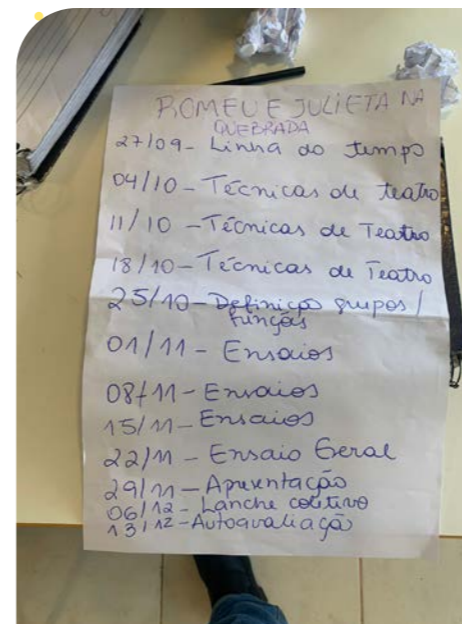 ROMEU E JULIETA NA
QUEBRADA
27/09 - Linha do tempo
04/10 - Técnicas de teatro
11/10 - Técnicas de Teatro
18/10 - Técnicas de Teatro
25/10 - Definição grupos /
funções
01/11 - Ensaios
08/11 - Ensaios
15/11 - Ensaios
22/11 - Ensaio Geral
29/11 - Apresentação
06/12 - Lanche coletivo
13/12 - Autoavaliação